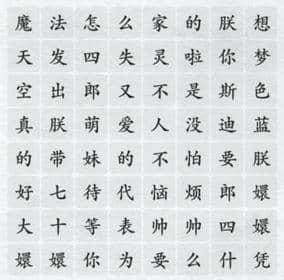 魔法怎么家的朕想
天发四失灵啦你梦
空出郎又不是斯色
真朕萌爱人没迪蓝
的带妹的不怕要朕
好七待代恼烦郎嬛
大十等表帅帅四嬛
嬛嬛你为要么什凭